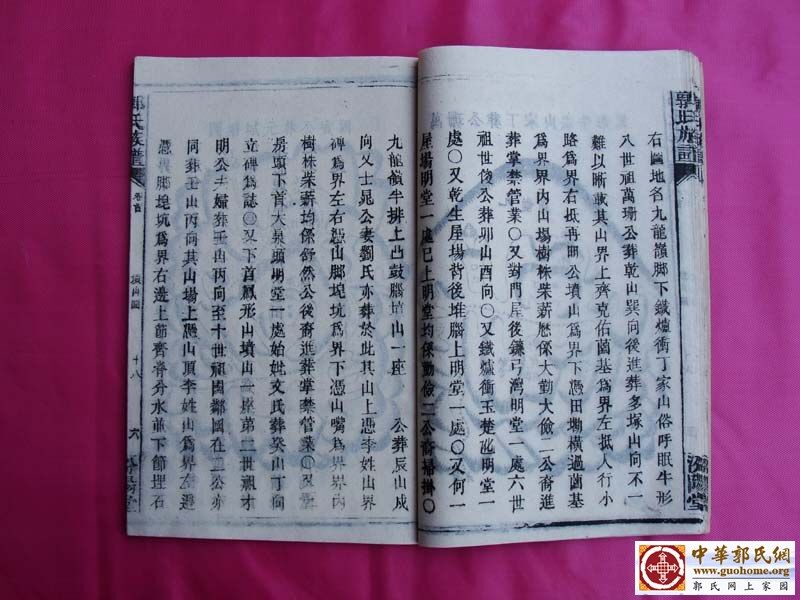 郭氏族譜
右圖地名九龍嶺脚下鐵爐衝丁家山俗呼眠牛形
八世祖萬珊公葬乾山巽向後進葬多塚山向不一
難以晰載其山界上齊克佑菌基為界左抵人行小
路為界右抵再明公墳山為界下憑田塝橫過菌基
為界界內山場樹株柴薪歷係大勤大儉二公裔進
葬掌禁管業〇又對門屋後鐮弓灣明堂一處六世
祖世俊公葬卯山酉向〇又鐵爐衝玉楚
明堂一
處〇又乾生屋場背後堆腦上明堂一處〇又何一
屋場明堂一處已上明堂均係勤儉二公裔掃掛〇
九龍嶺牛排上凸鼓腦墳山一座
公葬辰山戌
向又士晃公妻劉氏亦葬於此其山上憑李姓山界
碑為界左右憑山脚埦坑為界下憑山嘴為界界內
樹株柴薪均係舒然公後裔進葬掌禁管業〇
塝頭下首大泉頭明堂一處始妣文氏葬癸山丁向
立碑為誌〇又下首鳳形山墳山一座第二世
明公夫婦葬壬山丙向至十世祖國鄰國在二公亦
同葬壬山丙向其山場上憑山頂李姓山為界左邊
憑
脚埦坑為界右邊上節齊脊分水並下節埋石
氏族譜
卷首
墳山圖
十八
六
汾陽堂
中華郭氏網
www.guohome.org
郭氏网上家园